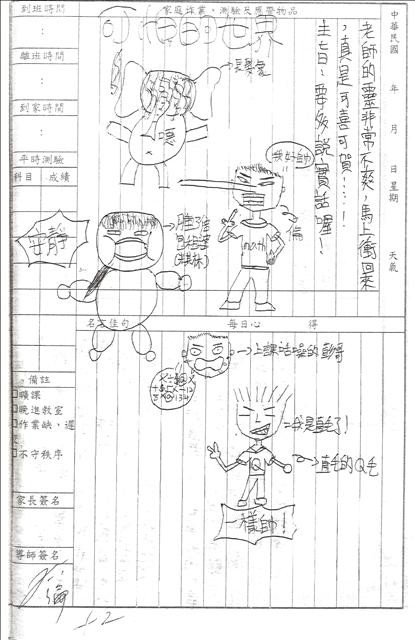 中華民國 年 月 日星期 天氣
老師的靈非常不爽，馬上衝回來
，真是可喜可賀‧‧‧！
主七日：要多說實話喔！
家庭作業、測驗及應帶物品
小的世界
到班時間
：
離班時間
：
到家時間
：
平時測驗
科目 成績
嗯
我好帥
math
安靜
名言佳句
每日心得
上課吵噪的彭哥
我是直毛了！
直毛的Q毛
Q
一樣帥！
備註
曠課
晚進教室
作業缺、遲
不守秩序
家長簽名
導師簽名
5-2